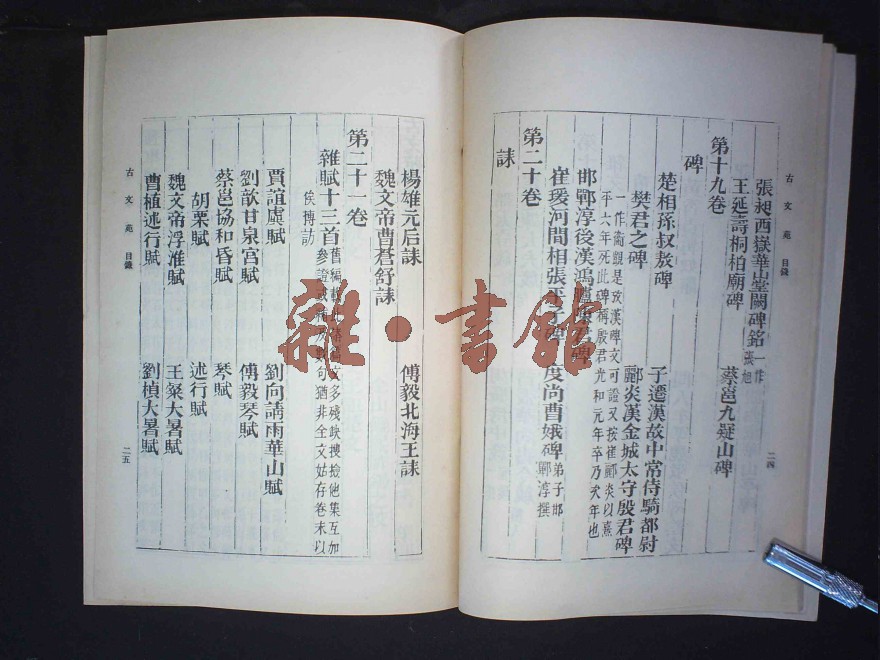 古文苑 目錄
二四
張昶西嶽華山堂闕碑銘 一作張旭
王延壽桐柏廟碑 蔡邕九疑山碑
第十九卷
碑
楚相孫叔敖碑 子遷漢故中常侍騎都尉
樊君之碑 酈炎漢金城太守殷君碑
一作衛覬是攷漢碑文可證又按崔酈炎以熹
平六年死此碑稱殷君光和元年卒乃次年也
邯鄲淳後漢鴻臚陳君碑
崔瑗河間相張平子碑 度尚曹娥碑 弟子邯鄲淳撰
第二十卷
誄
楊雄元后誄 傅毅北海王誄
魏文帝曹蒼舒誄
第二十一卷
雜賦十三首 舊編載此
多殘缺搜檢他集互加
參證或補
句猶非全文姑存卷末以
俟摶訪
賈誼虡賦 劉向請雨華山賦
劉歆甘泉宮賦 傅毅琴賦
蔡邕協和昏賦 琴賦
胡栗賦 述行賦
魏文帝浮淮賦 王粲大暑賦
曹植述行賦 劉楨大暑賦
古文苑 目錄
二五
雜·書館